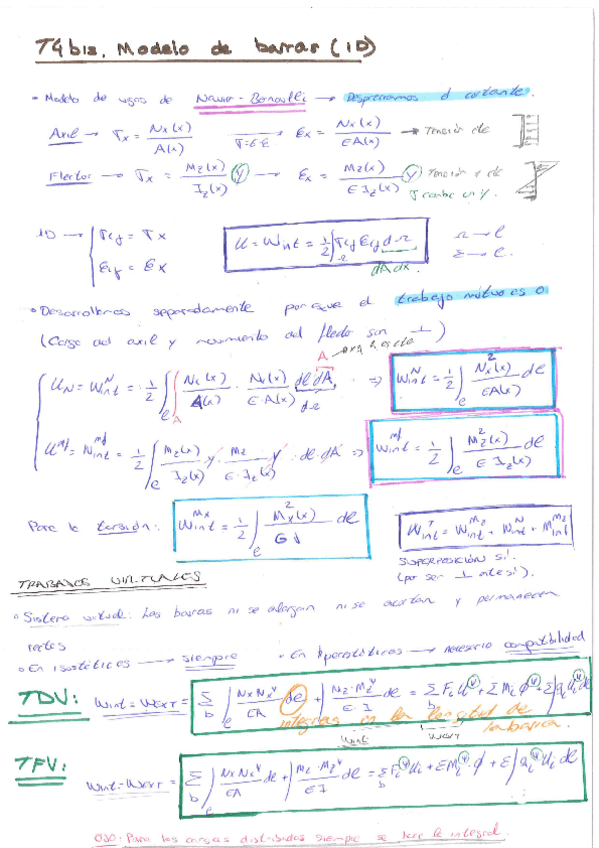 T4 bis. Modelo de barras (1D)
• Modelo de vigas de Navier-Bernoulli → Despreciamos el cortante.
Axil → σx = Nx(x) / A(x) σ=E·ε εx = Nx(x) / EA(x) → Tensión cte
Flector → σx = Mz(x) / Iz(x) y → εx = Mz(x) / E Iz(x) y Tensión
σ cambia con y.
1D → { σij = σx
εij = εx
U = Wint = 1/2 ∫Ω σij εij dΩ
dA dx
Ω → l
Σ → l.
• Desarrollamos separadamente porque el trabajo mutuo es 0
(Carga del axil y movimiento del flector son ⊥)
UN = Wint^N = 1/2 ∫e ∫A Nx(x) / A(x) · Nx(x) / E·A(x) dl dA, ⇒ Wint^N = 1/2 ∫e Nx²(x) / EA(x) dl
A
dΩ
U^Mf = Wint^Mf = 1/2 ∫e Mz(x) / Iz(x) y · Mz / E·Iz(x) y · dl · dA ⇒ Wint^Mf = 1/2 ∫e Mz²(x) / E·Iz(x) dl
Para la torsión: Wint^Mx = 1/2 ∫e Mx²(x) / GJ dl
Wint^T = Wint^Mz + Wint^N + Wint^Mz
SUPERPOSICIÓN SI!
(por ser ⊥ entre sí).
TRABAJOS VIRTUALES
• Sistema virtual: Las barras ni se alargan ni se acortan y permanecen
rectas
• En isostáticos → siempre • En hiperestáticos → necesario compatibilidad
TDV: Wint = Wext = Σb ∫e Nx Nx^v / EA dl + ∫ Mz · Mz^v / E·I dl = Σb Fi U^v + Σ Mi φ^v + Σ∫ qi ui^v dl
integras en la longitud de
la barra.
Wint Wext
TFV: Wint = Wext = Σb ∫e Nx Nx^v / EA dl + ∫ Mz · Mz^v / EI dl = Σb Fi^v ui + Σ Mi^v · φ + Σ∫ qi^v ui dl
OJO: Para las cargas distribuidas siempre se hace la integral.